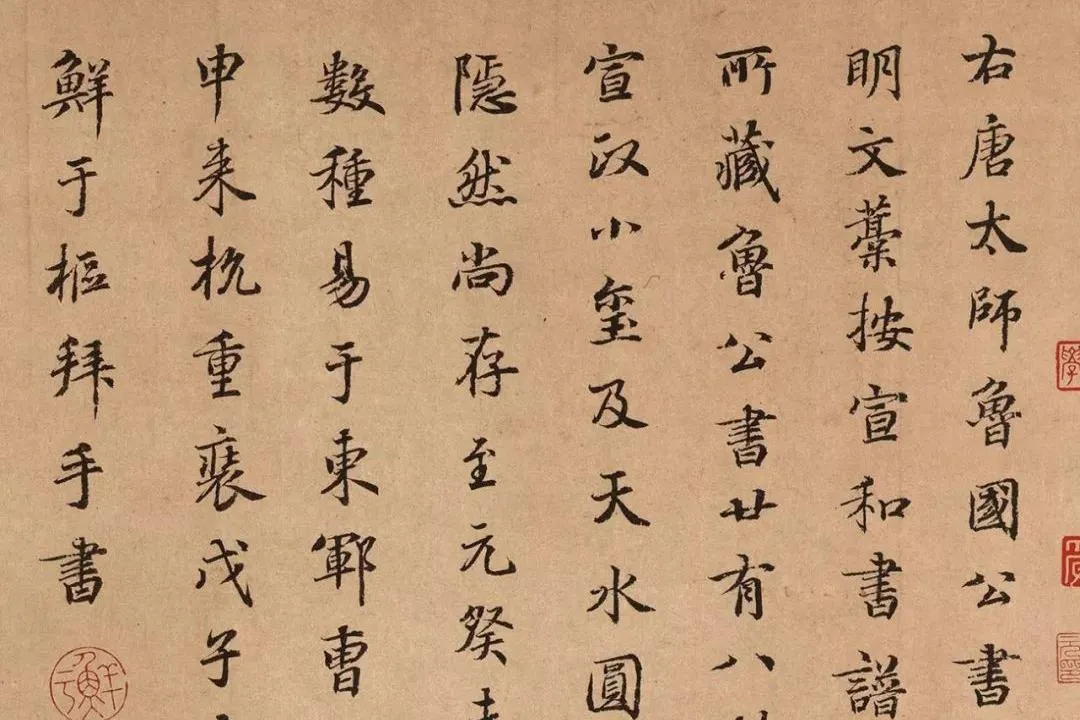 右唐太師魯國公書
明文藁按宣和書譜
所藏魯公書廿有八
宣政小璽及天水圓
隱然尚存至元癸
數種易于東鄆曹
申来杭重裝戊子
鮮于樞拜手書